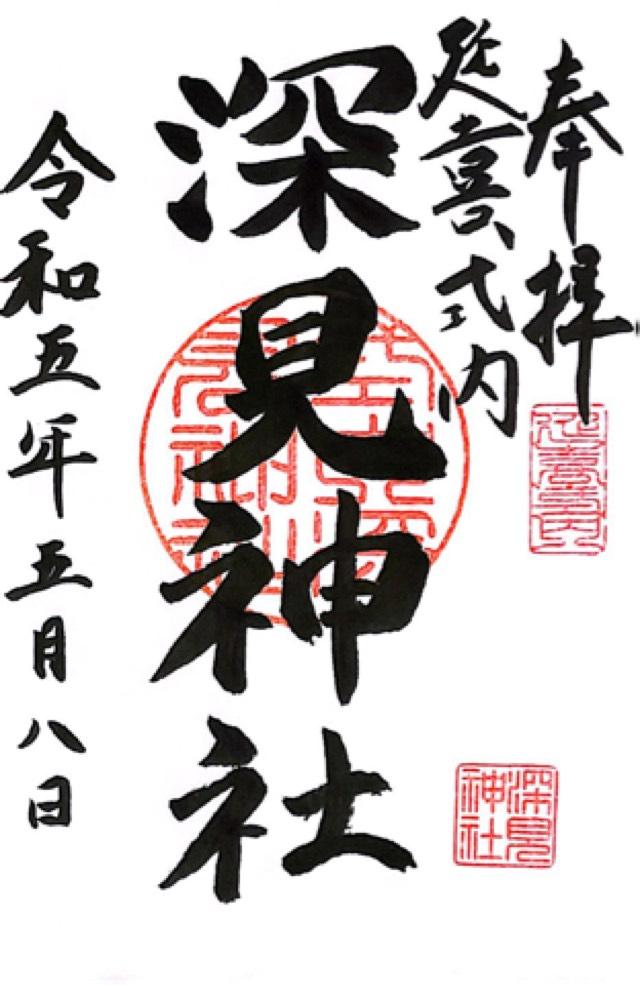 奉拝
延喜式内
深見神社
令和五年五月八日
延喜式内
深見神社